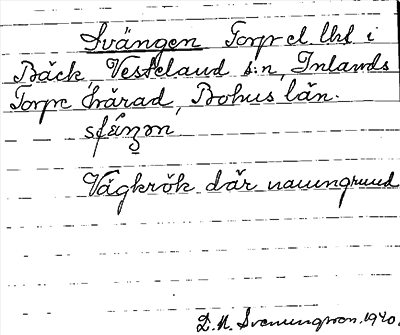 Svängen Torp el lht i
Bäck, Vesteland s:n, Inlands
Torpe härad, Bohus län.
Vägkrök där namngrund
D. A. Svenungsson. 1940.